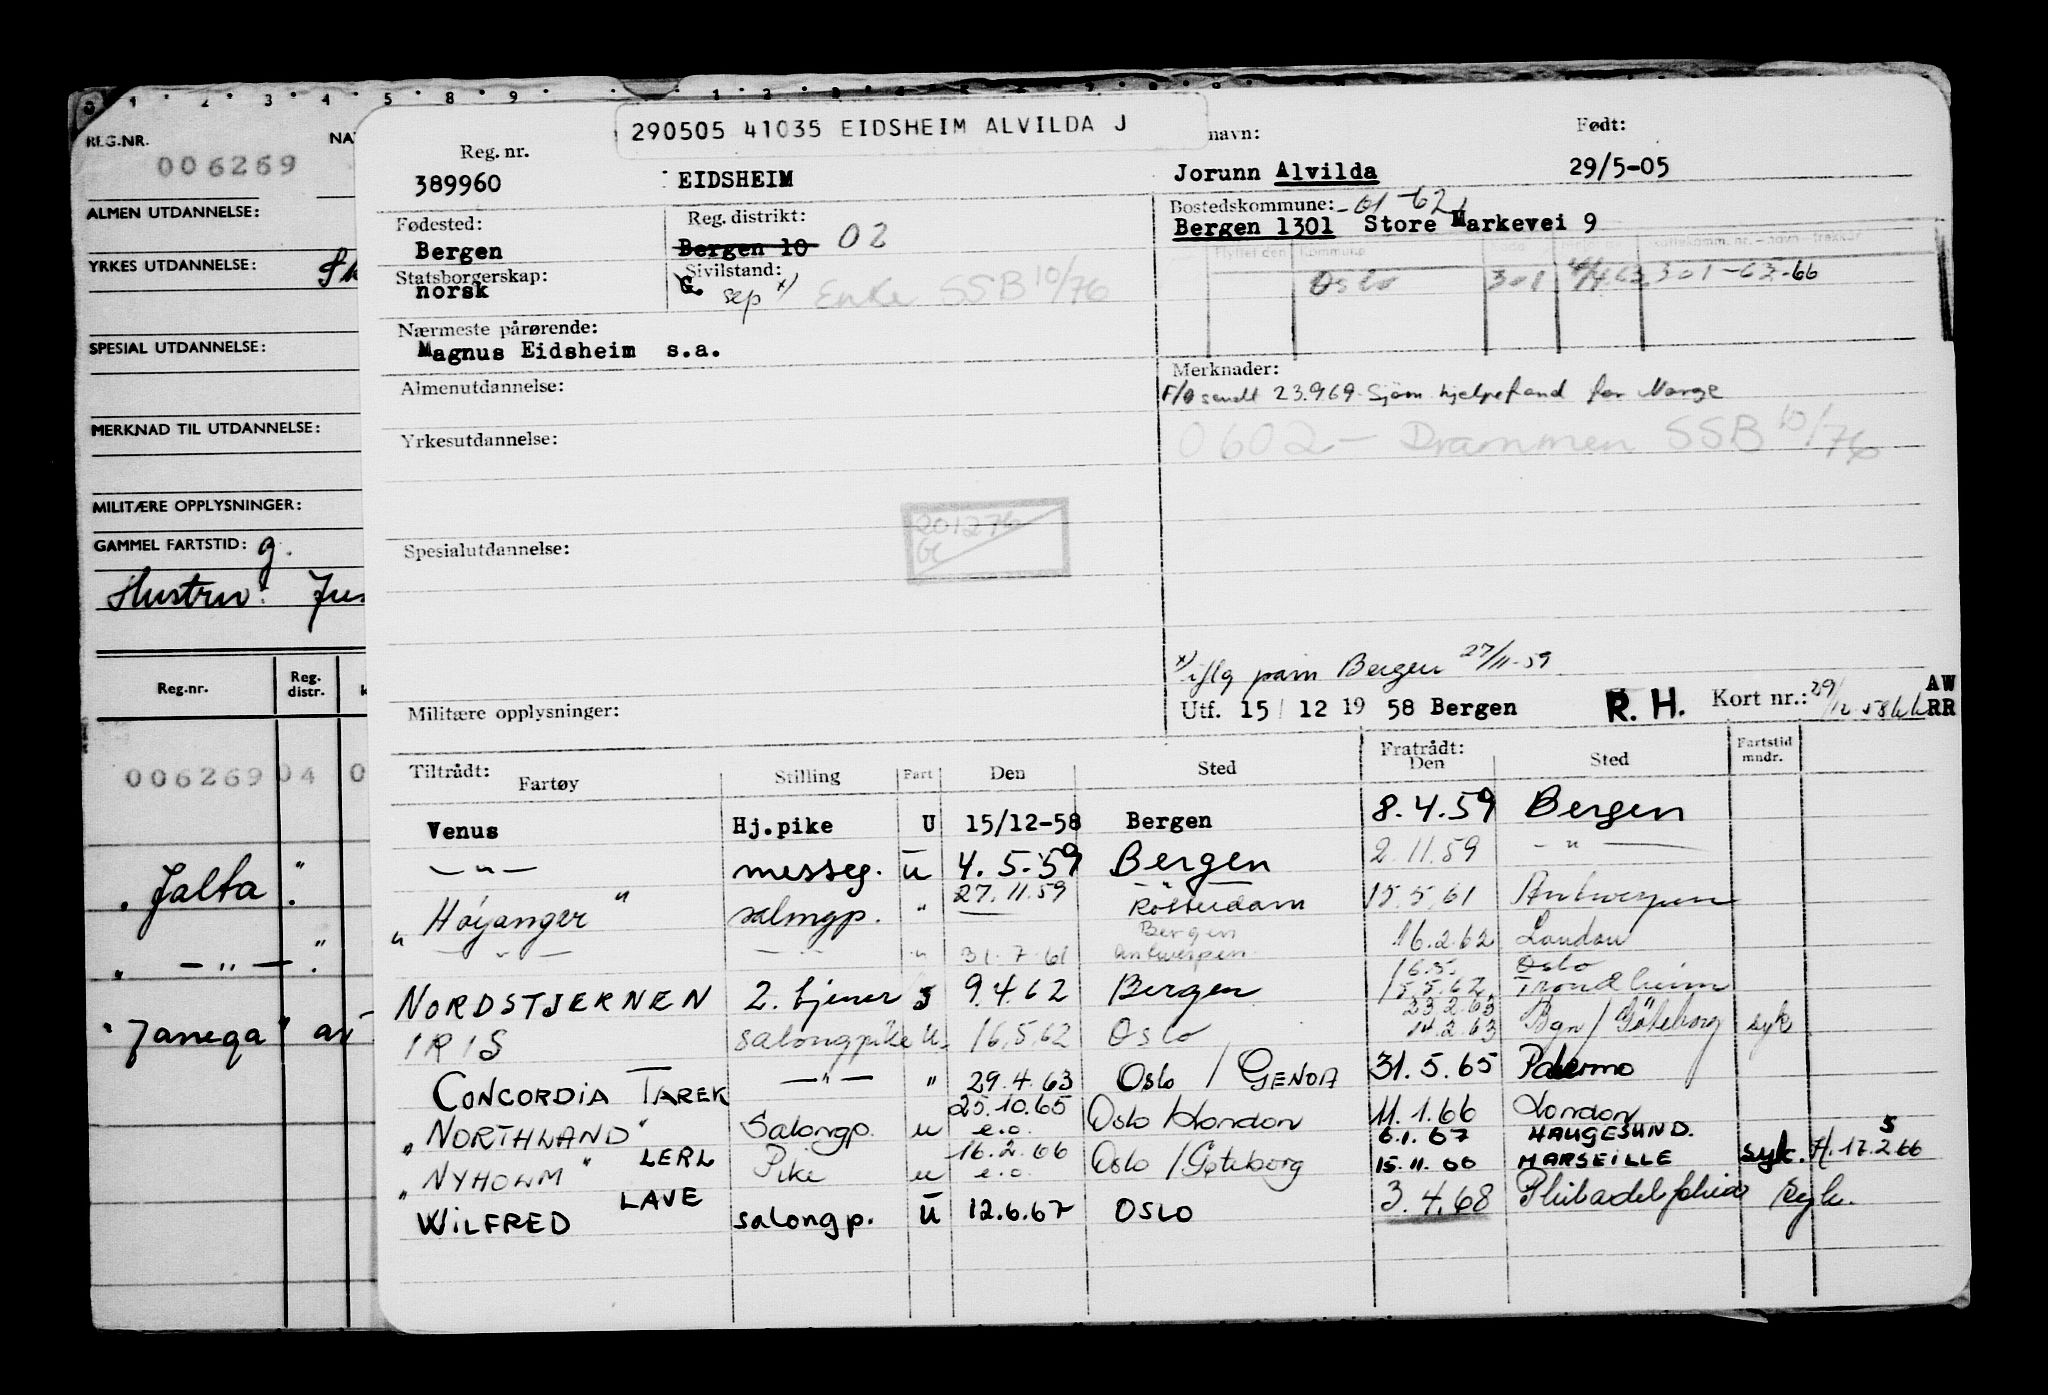 1 2 3 4 5 8 9 1 2 3 4 5 6 7 8 9
REG.NR. NA
006269
ALMEN UTDANNELSE:
YRKES UTDANNELSE:
SPESIAL UTDANNELSE:
MERKNAD TIL UTDANNELSE:
MILITÆRE OPPLYSNINGER:
GAMMEL FARTSTID: g.
Hustru:
Reg.nr. Reg. distr. k
006269 04 0
„ Jalta "
„ — " — "
"Janega" as
290505 41035 EIDSHEIM ALVILDA J
navn: Født:
Reg. nr.
389960 EIDSHEIM Jorunn Alvilda 29/5-05
Fødested: Reg. distrikt: Bostedskommune: -61-62
Bergen Bergen 10 02 Bergen 1301 Store Markevei 9
Flyttet den Kommune
Statsborgerskap: Sivilstand:
norsk G. sep x) Enke SSB 10/76 Oslo 301 63 301-65-66
Nærmeste pårørende:
Magnus Eidsheim s.a.
Almenutdannelse: Merknader:
F/O sendt 23.9.69 Sjøm hjelpefond for Norge
Yrkesutdannelse: 0602 - Drammen SSB 10/76
201276
Spesialutdannelse:
x) iflg pam Bergen 27/11-59
Militære opplysninger: Utf. 15/ 12 19 58 Bergen R. H. Kort nr.: 29/12 58 AW RR
Tiltrådt: Fratrådt: Fartstid mndr.
Fartøy Stilling Fart Den Sted Den Sted
Venus Hj.pike U 15/12-58 Bergen 8.4.59 Bergen
— " — messeg. u 4.5.59 Bergen 2.11.59 — " —
„ Høyanger " salongp. " 27.11.59 Rotterdam 15.5.61 Antwerpen
— " — — " — " 31.7.61 Bergen Antwerpen 16.2.62 London
NORDSTJERNEN 2. tjener 9.4.62 Bergen 15.5.62 Oslo Trondheim
IRIS salongpike U. 16.5.62 Oslo 23.2.63 14.2.63 Bgn / Göteborg syk
CONCORDIA TAREK — " — " 29.4.63 Oslo / GENOA 31.5.65 Palermo
„ NORTHLAND " Salongp. u 25.10.65 e.o. Oslo / London 11.1.66 London
6.1.67 HAUGESUND.
„ NYHOLM " LERL Pike u 16.2.66 e.o. Oslo / Göteborg 15.11.66 MARSEILLE syk. H. 17.2.66 5
WILFRED LAVE salongp. U 12.6.67 OSLO 3.4.68 Philadelphia syk.